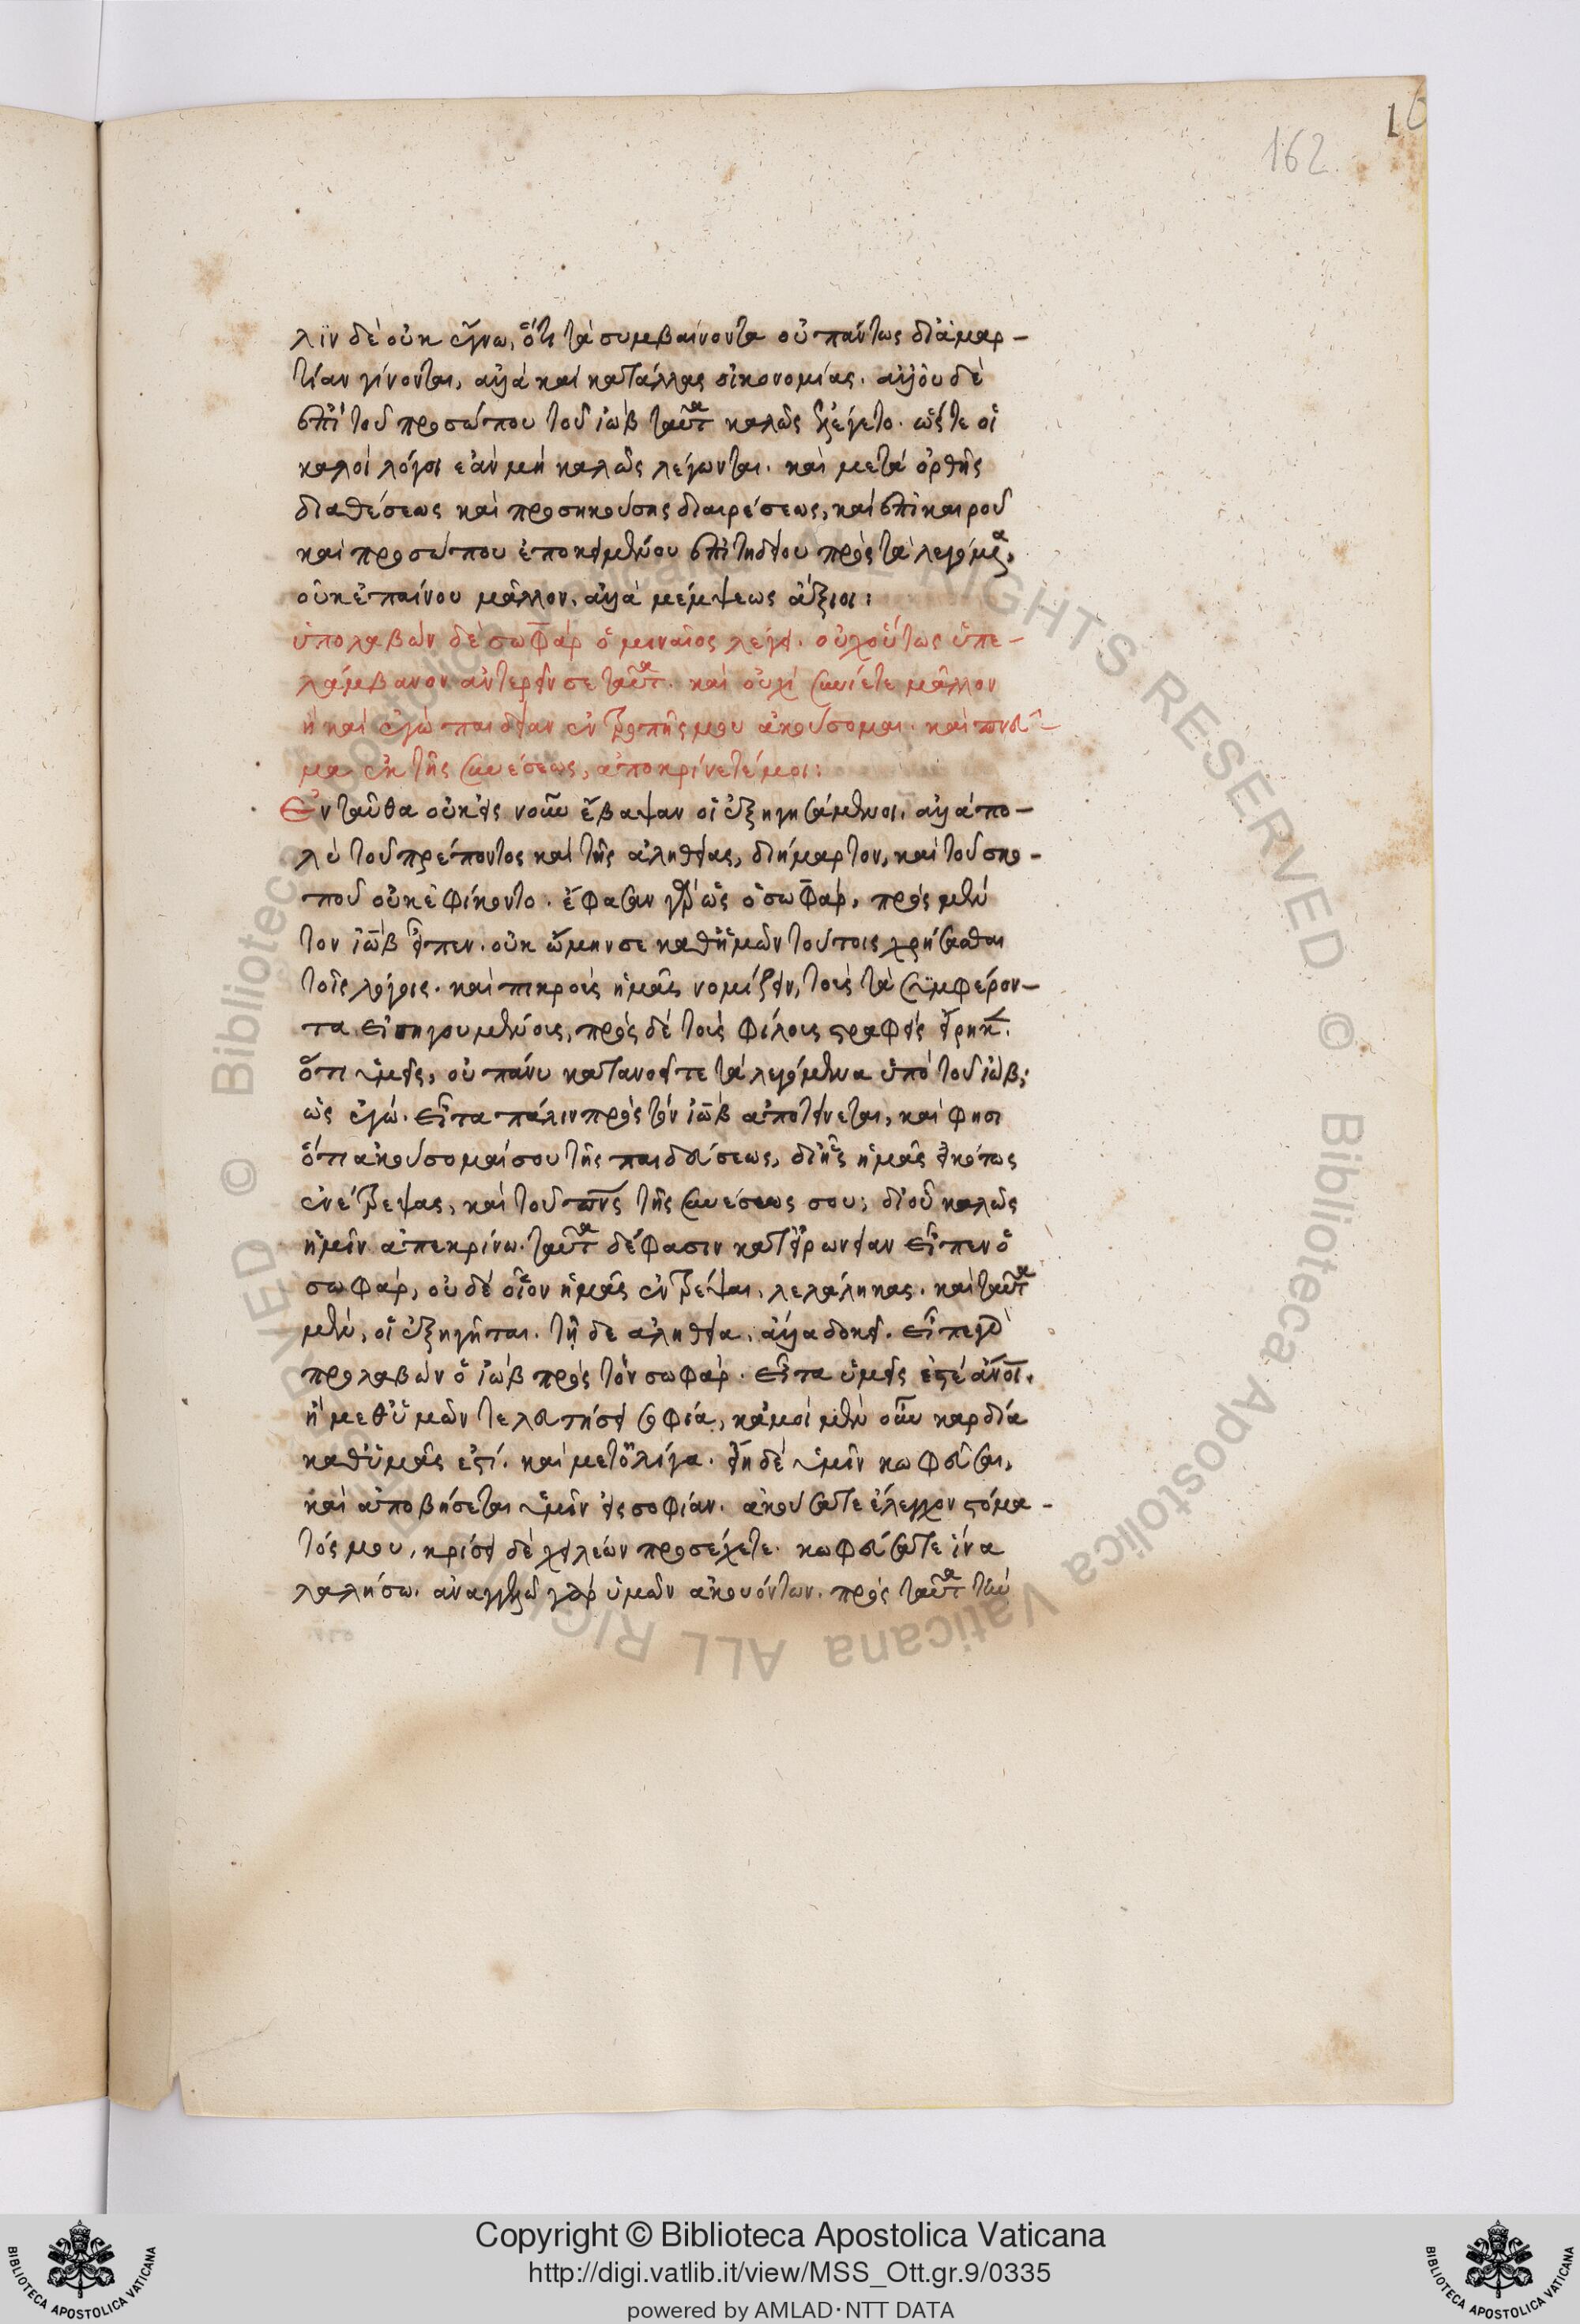 10
162
λϊν δὲ οὐκ ἔγνω, ὅτι τὰ συμβαίνοντα οὐ πάντως δι' ἁμαρ-
τίαν γίνονται, ἀλλὰ καὶ κατ' ἄλλας οἰκονομίας. ἀλλ' οὐδὲ
ἐπὶ τοῦ προσώπου τοῦ ἰὼβ ταῦτα καλῶς ἐλέγετο. ὥστε οἱ
καλοὶ λόγοι ἐὰν μὴ καλῶς λέγωνται. καὶ μετὰ ὀρθῆς
διαθέσεως καὶ προσηκούσης διαιρέσεως, καὶ ἐπὶ καιροῦ
καὶ προσώπου ὑποκειμένου ἐπιτηδείου πρὸς τὰ λεγόμενα,
οὐκ ἐπαίνου μᾶλλον, ἀλλὰ μέμψεως ἄξιοι:
ὑπολαβὼν δὲ σωφὰρ ὁ μιναῖος λέγει. οὐχ οὕτως ὑπε-
λάμβανον ἀντερεῖν σε ταῦτα. καὶ οὐχὶ συνίετε μᾶλλον
ἢ καὶ ἐγὼ παιδείαν ἐντροπῆς μου ἀκούσομαι. καὶ πνεῦ-
μα ἐκ τῆς συνέσεως, ἀποκρίνεταί μοι:
Ἐνταῦθα οὐκ εἰς νοῦν ἔβαψαν οἱ ἐξηγησάμενοι, ἀλλὰ πο-
λὺ τοῦ πρέποντος καὶ τῆς ἀληθείας, διήμαρτον, καὶ τοῦ σκο-
ποῦ οὐκ ἐφίκοντο. ἔφασαν γὰρ ὡς ὁ σωφάρ, πρὸς μὲν
τὸν ἰὼβ εἶπεν. οὐκ ᾤμην σε καθ' ἡμῶν τούτοις χρήσασθαι
τοῖς λόγοις. καὶ πικροὺς ἡμᾶς νομίζειν, τοὺς τὰ συμφέρον-
τα εἰσηγουμένους, πρὸς δὲ τοὺς φίλους στραφεὶς εἴρηκε.
ὅτι ὑμεῖς, οὐ πάνυ κατανοεῖτε τὰ λεγόμενα ὑπὸ τοῦ ἰώβ;
ὡς ἐγώ. εἶτα πάλιν πρὸς τὸν ἰὼβ ἀποτείνεται, καὶ φησι
ὅτι ἀκούσομαί σου τῆς παιδεύσεως, δι' ἧς ἡμᾶς εἰκότως
ἐνέτρεψας, καὶ τοῦ πνς τῆς συνέσεως σου; δι' οὗ καλῶς
ἡμῖν ἀπεκρίνω. ταῦτα δέ φασιν κατ' εἰρωνείαν εἶπεν ὁ
σωφάρ, οὐδὲ οἷον ἡμᾶς ἐντρέψαι, λελάληκας. καὶ ταῦτα
μέν, οἱ ἐξηγηταί. τῇ δὲ ἀληθείᾳ, ἀλλὰ δοκεῖ. εἶπε γὰρ
προλαβὼν ὁ ἰὼβ πρὸς τὸν σωφάρ. εἶτα ὑμεῖς ἐστέ ἄνοι,
ἢ μεθ' ὑμῶν τελευτήσει σοφία, κἀμοὶ μὲν οὖν καρδία
καθ' ὑμᾶς ἐστί. καὶ μετ' ὀλίγα. εἴη δὲ ὑμῖν κωφεῦσαι,
καὶ ἀποβήσεται ὑμῖν εἰς σοφίαν. ἀκούσατε ἔλεγχον στόμα-
τός μου, κρίσει δὲ χειλέων προσέχετε. κωφεύσατε ἵνα
λαλήσω. ἀναγγελῶ γὰρ ὑμῶν ἀκουόντων. πρὸς ταῦτα τὴν
Copyright © Biblioteca Apostolica Vaticana
http://digi.vatlib.it/view/MSS_Ott.gr.9/0335
powered by AMLAD·NTT DATA